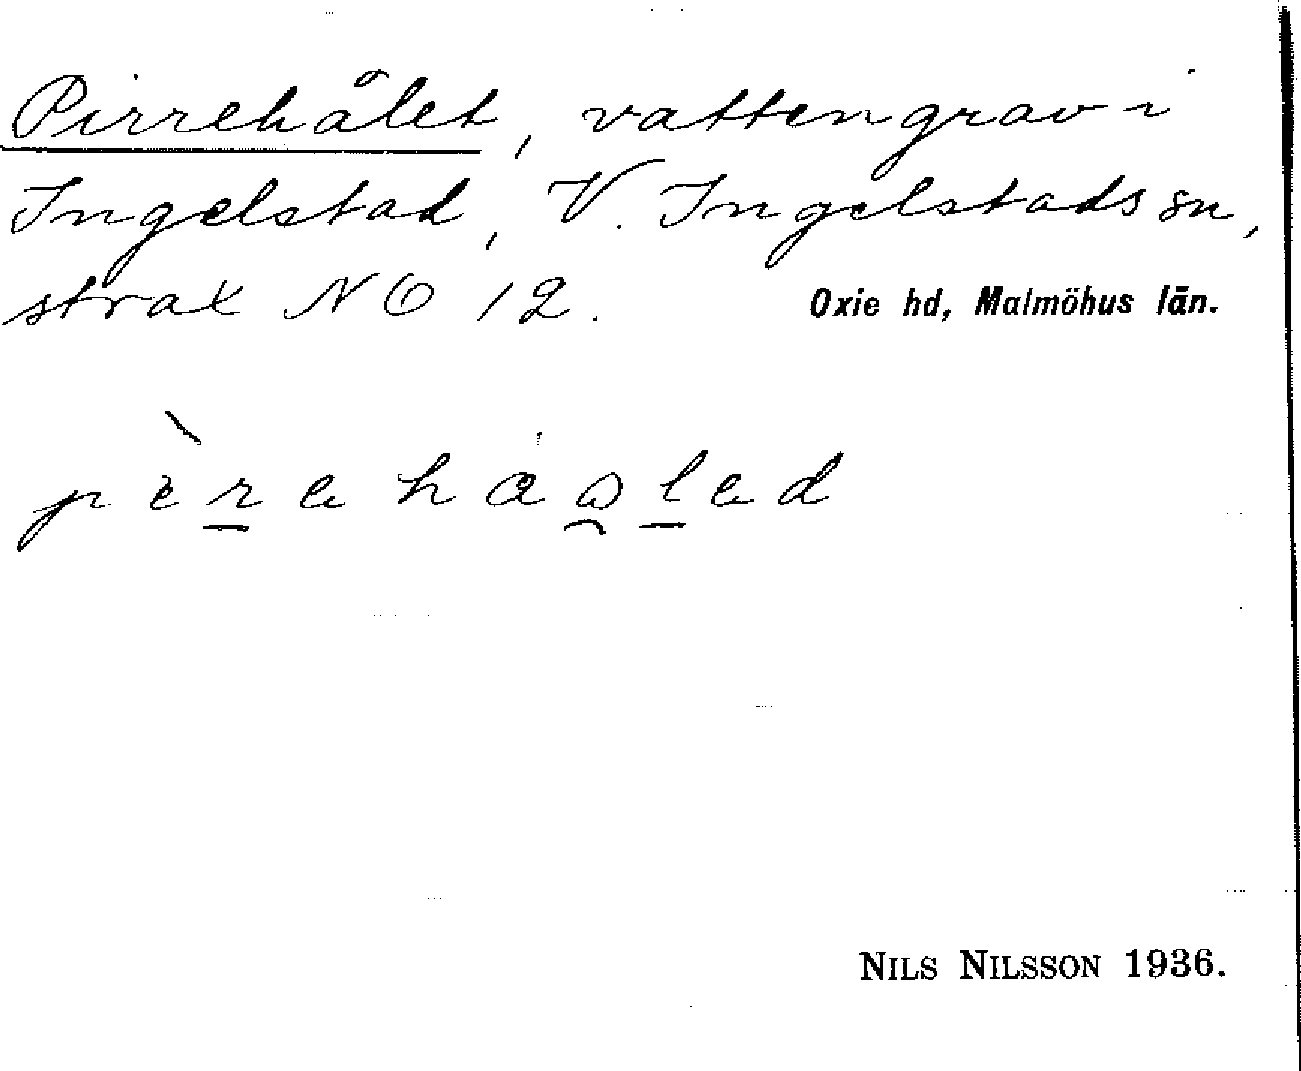 Pirrehålet, vattengrav i
Ingelstad, V. Ingelstads sn,
strax NO 12. Oxie hd, Malmöhus län.
NILS NILSSON 1936.